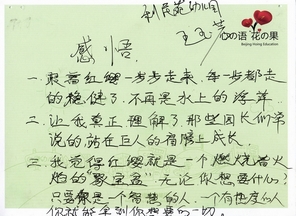 利民苑幼儿园
心の语 花の果
Beijing Hong Education
感悟
一、跟着红缨一步步走来，每一步都走
的稳健了，不再是水上的浮萍
二、让我真正理解了那些园长们常
说的站在巨人的肩膀上成长
三、我觉得红缨就是一个燃烧着火
焰的“聚宝盆”无论你想要什么？
只要你是一个智慧的人，一个有态度的人
你就能拿到你想要的一切。